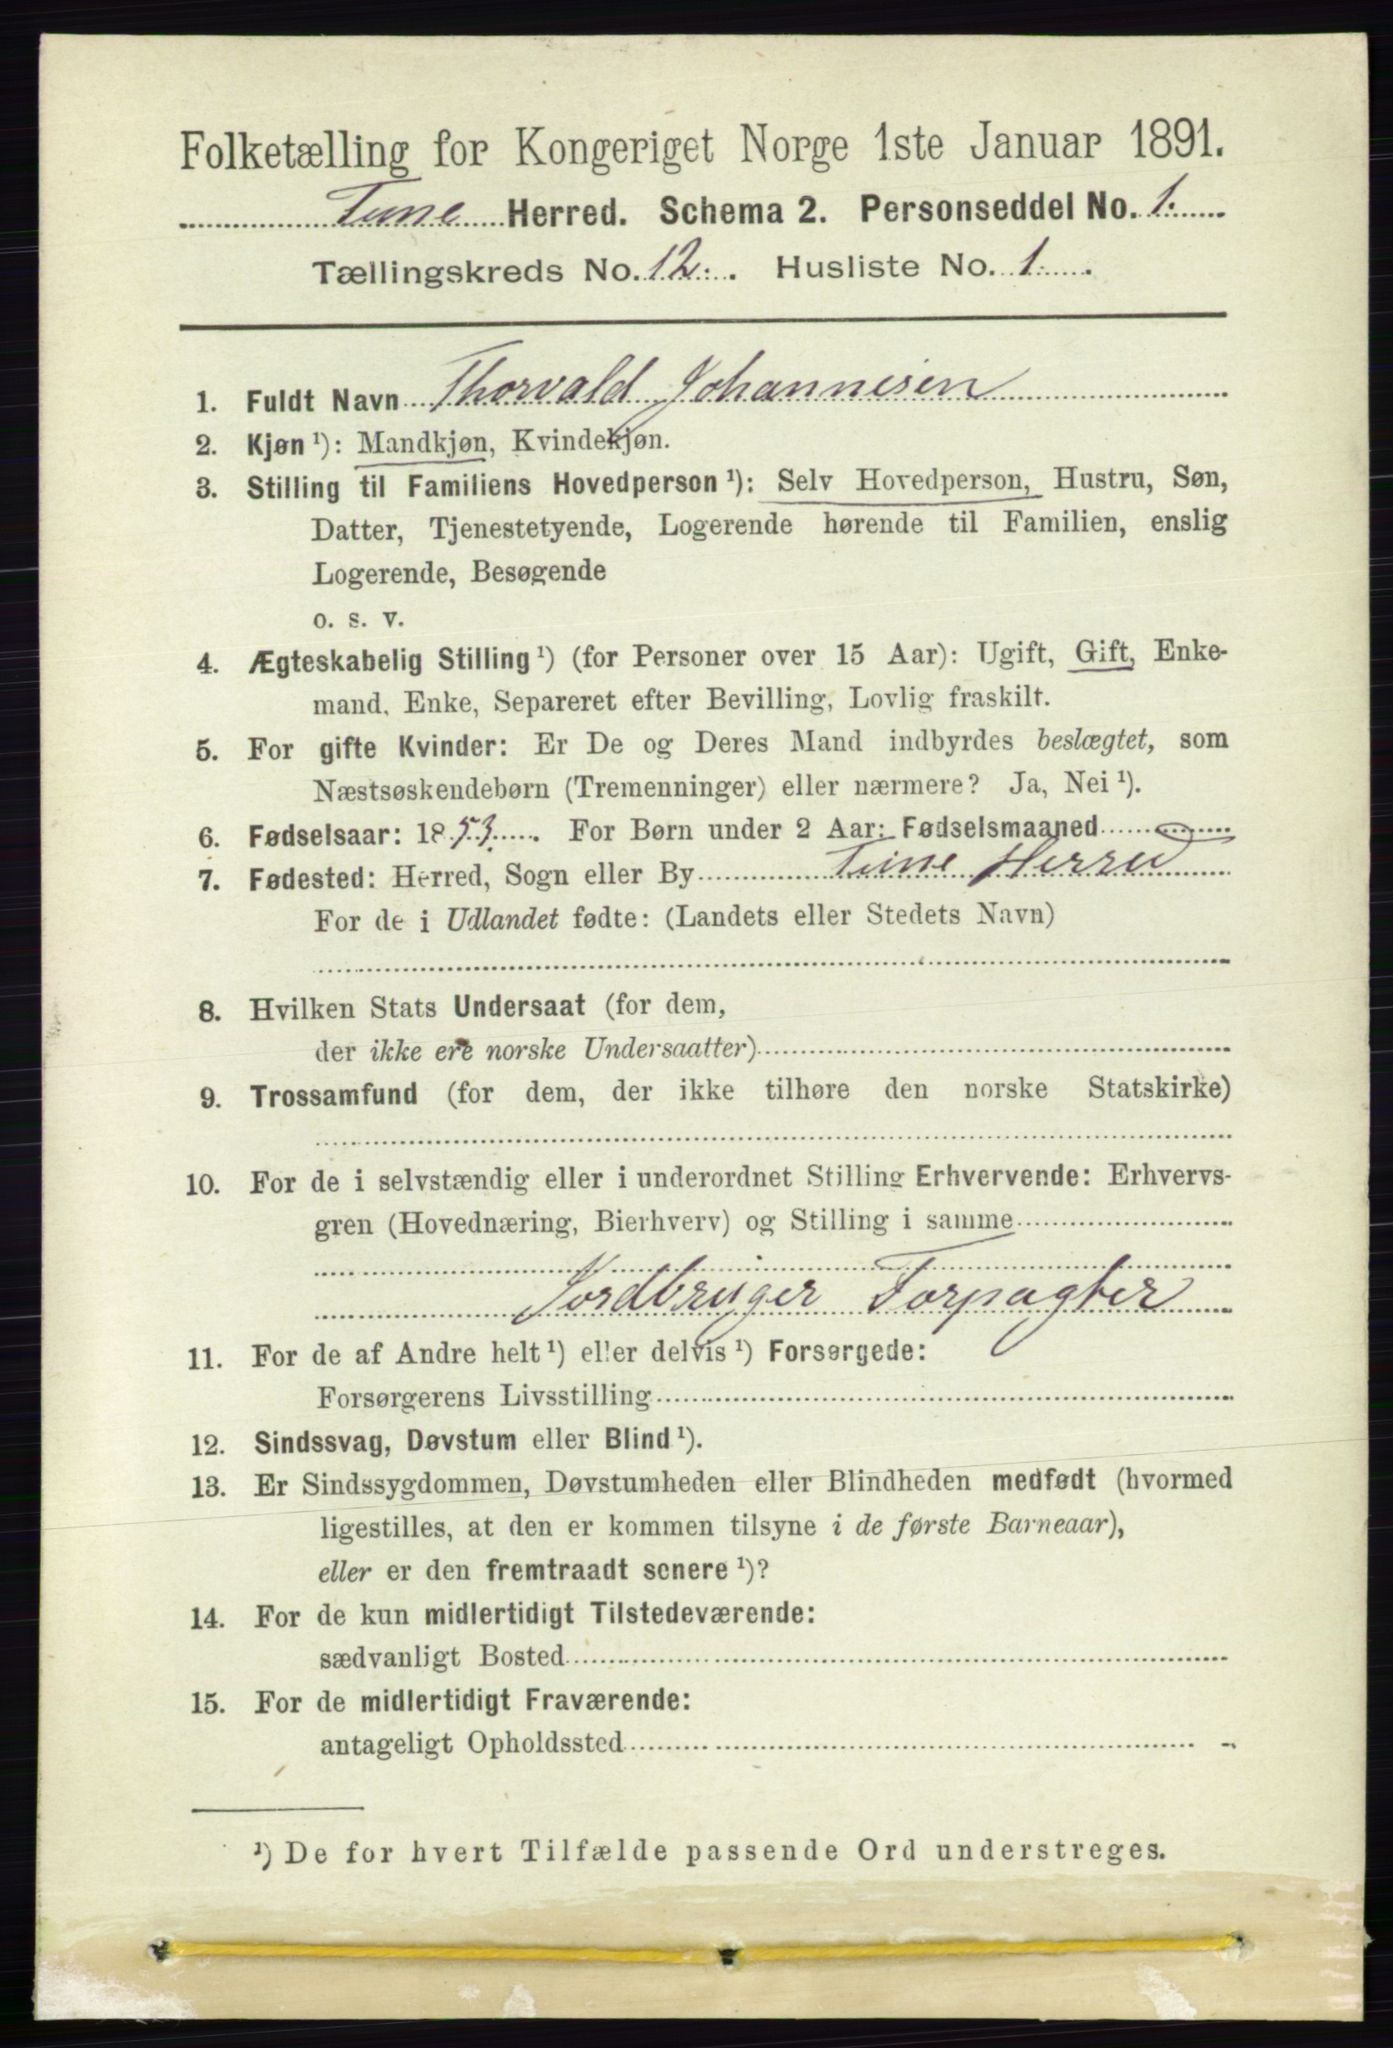 Folketælling for Kongeriget Norge 1ste Januar 1891.
Tune Herred. Schema 2. Personseddel No. 1.
Tællingskreds No. 12. Husliste No. 1.
1. Fuldt Navn Thorvald Johannesen
2. Kjøn ¹): Mandkjøn, Kvindekjøn.
3. Stilling til Familiens Hovedperson ¹): Selv Hovedperson, Hustru, Søn,
Datter, Tjenestetyende, Logerende hørende til Familien, enslig
Logerende, Besøgende
o. s. v.
4. Ægteskabelig Stilling ¹) (for Personer over 15 Aar): Ugift, Gift, Enke-
mand, Enke, Separeret efter Bevilling, Lovlig fraskilt.
5. For gifte Kvinder: Er De og Deres Mand indbyrdes beslægtet, som
Næstsøskendebørn (Tremenninger) eller nærmere? Ja, Nei ¹).
6. Fødselsaar: 1853. For Børn under 2 Aar: Fødselsmaaned
7. Fødested: Herred, Sogn eller By Tune Herred
For de i Udlandet fødte: (Landets eller Stedets Navn)
8. Hvilken Stats Undersaat (for dem,
der ikke ere norske Undersaatter)
9. Trossamfund (for dem, der ikke tilhøre den norske Statskirke)
10. For de i selvstændig eller i underordnet Stilling Erhvervende: Erhvervs-
gren (Hovednæring, Bierhverv) og Stilling i samme
Jordbruger Forpagter
11. For de af Andre helt ¹) eller delvis ¹) Forsørgede:
Forsørgerens Livsstilling
12. Sindssvag, Døvstum eller Blind ¹).
13. Er Sindssygdommen, Døvstumheden eller Blindheden medfødt (hvormed
ligestilles, at den er kommen tilsyne i de første Barneaar),
eller er den fremtraadt senere ¹)?
14. For de kun midlertidigt Tilstedeværende:
sædvanligt Bosted
15. For de midlertidigt Fraværende:
antageligt Opholdssted
¹) De for hvert Tilfælde passende Ord understreges.